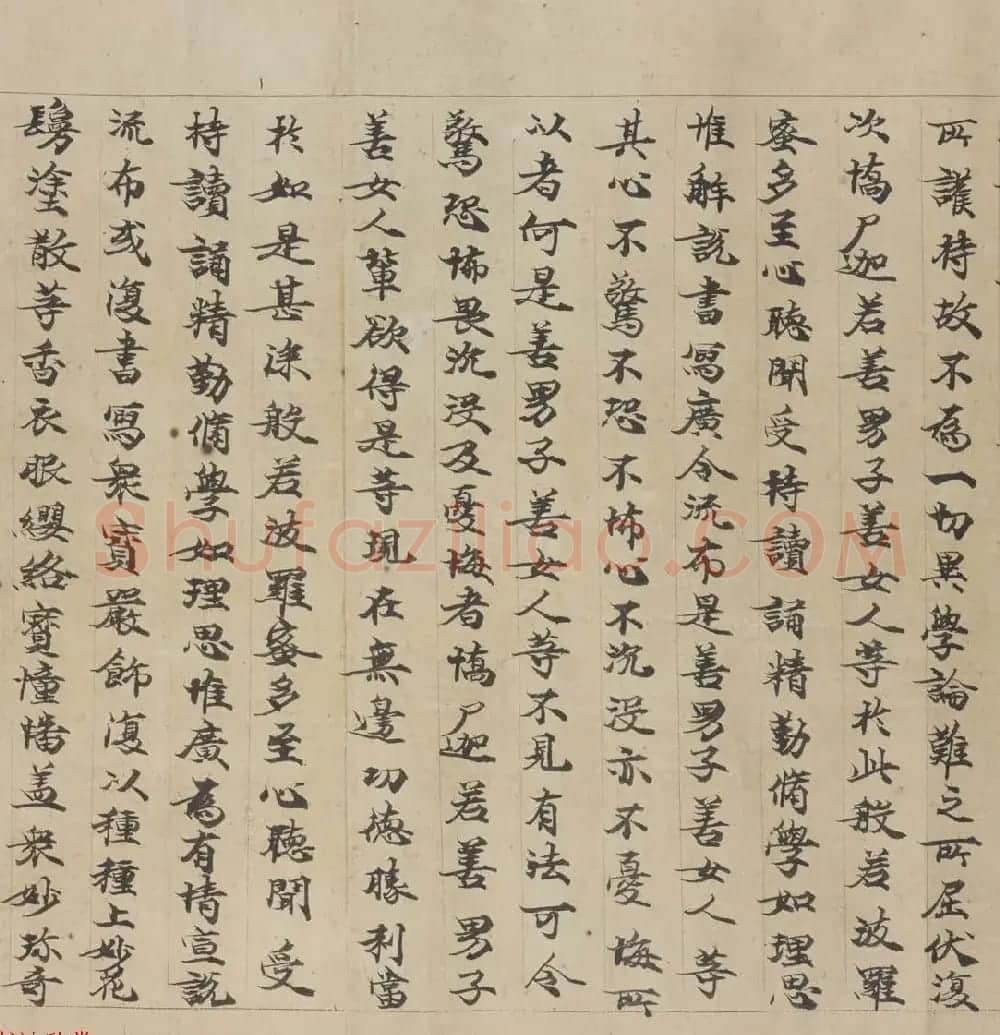 所護持故不為一切異學論難之所屈伏復
次憍尸迦若善男子善女人等於此般若波羅
蜜多至心聽聞受持讀誦精勤脩學如理思
惟解說書寫廣令流布是善男子善女人等
其心不驚不恐不怖心不沉沒亦不憂悔所
以者何是善男子善女人等不見有法可令
驚恐怖畏沉沒及憂悔者憍尸迦若善男子
善女人輩欲得是等現在無邊功德勝利當
於如是甚深般若波羅蜜多至心聽聞受
持讀誦精勤脩學如理思惟廣為有情宣說
流布或復書寫衆寶嚴飾復以種種上妙花
鬘塗散等香衣服纓絡寶幢幡盖衆妙珎奇
Shufaziliao.COM